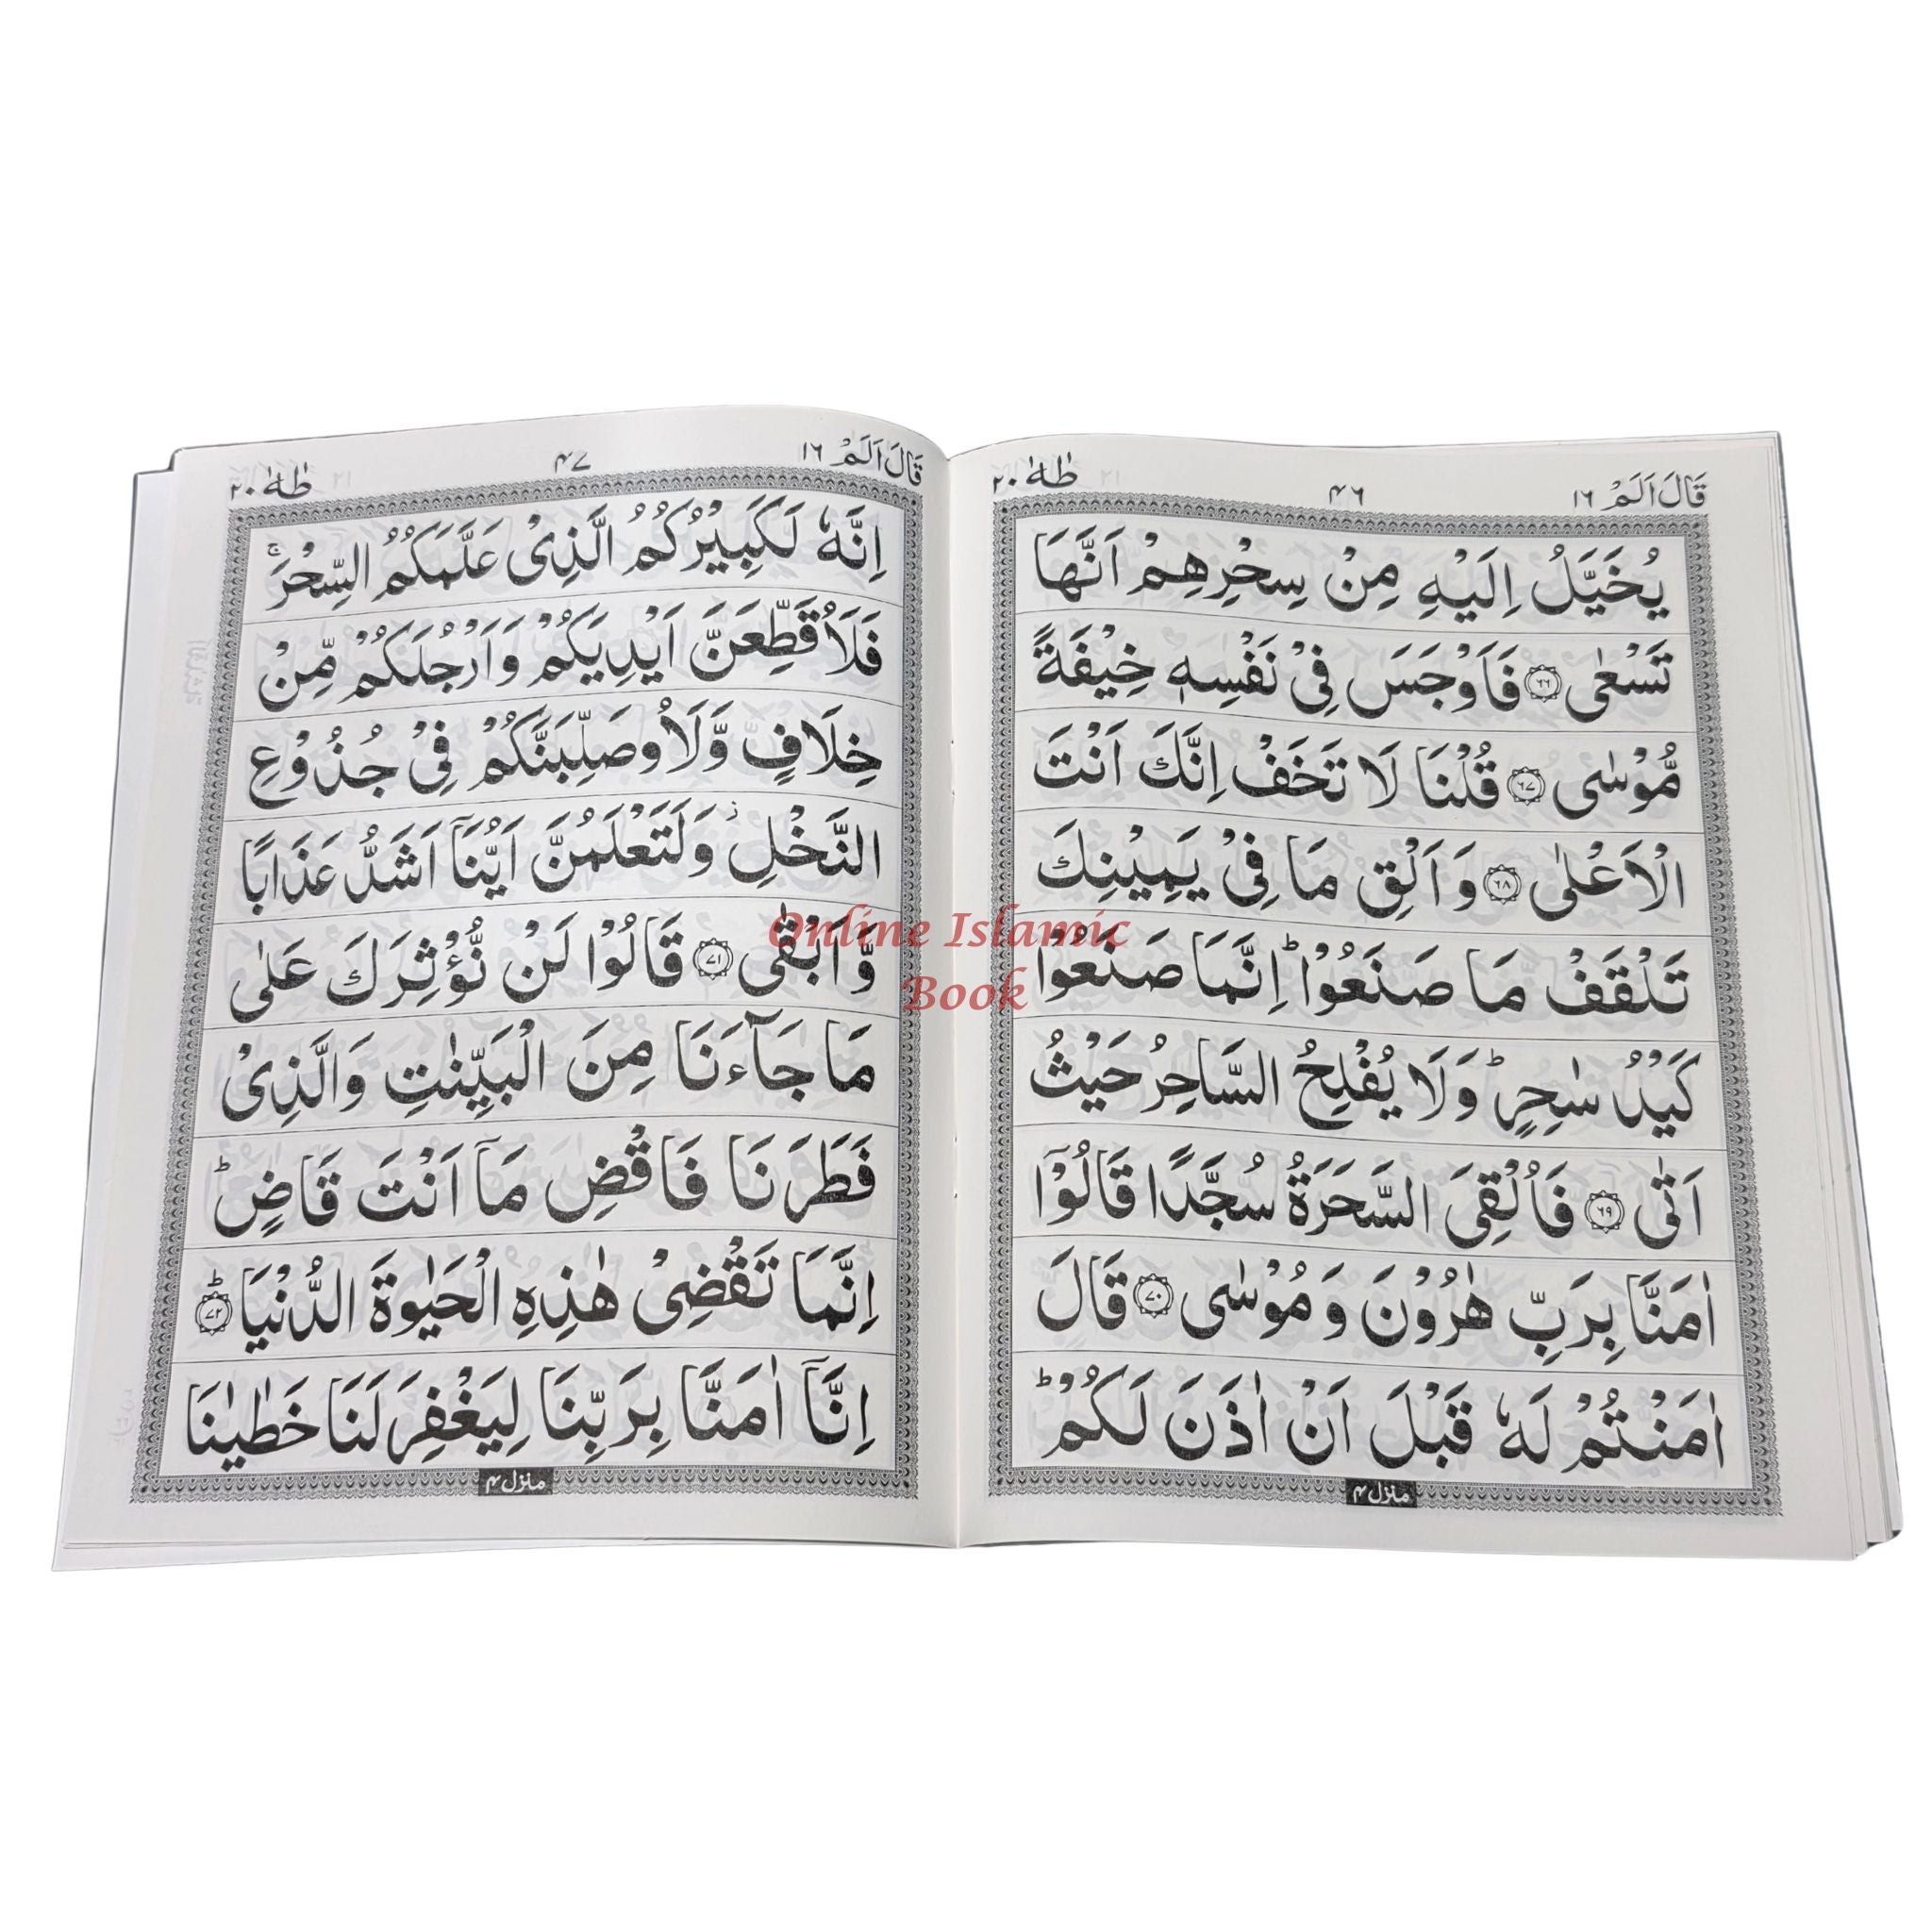 قَالَ اَلَمْ ١٦
٤٦
طٰهٰ ٢٠
يُخَيَّلُ اِلَيْهِ مِنْ سِحْرِهِمْ اَنَّهَا
تَسْعٰى ٦٦ فَاَوْجَسَ فِيْ نَفْسِهٖ خِيْفَةً
مُّوْسٰى ٦٧ قُلْنَا لَا تَخَفْ اِنَّكَ اَنْتَ
الْاَعْلٰى ٦٨ وَاَلْقِ مَا فِيْ يَمِيْنِكَ
تَلْقَفْ مَا صَنَعُوْا ؕ اِنَّمَا صَنَعُوْا
كَيْدُ سٰحِرٍ ؕ وَلَا يُفْلِحُ السَّاحِرُ حَيْثُ
اَتٰى ٦٩ فَاُلْقِيَ السَّحَرَةُ سُجَّدًا قَالُوْٓا
اٰمَنَّا بِرَبِّ هٰرُوْنَ وَمُوْسٰى ٧٠ قَالَ
اٰمَنْتُمْ لَهٗ قَبْلَ اَنْ اٰذَنَ لَكُمْ ؕ
منزل ٤
قَالَ اَلَمْ ١٦
٤٧
طٰهٰ ٢٠
اِنَّهٗ لَكَبِيْرُكُمُ الَّذِيْ عَلَّمَكُمُ السِّحْرَ ۚ
فَلَاُقَطِّعَنَّ اَيْدِيَكُمْ وَاَرْجُلَكُمْ مِّنْ
خِلَافٍ وَّلَاُوصَلِّبَنَّكُمْ فِيْ جُذُوْعِ
النَّخْلِ ز وَلَتَعْلَمُنَّ اَيُّنَآ اَشَدُّ عَذَابًا
وَّاَبْقٰى ٧١ قَالُوْا لَنْ نُّؤْثِرَكَ عَلٰى
مَا جَآءَنَا مِنَ الْبَيِّنٰتِ وَالَّذِيْ
فَطَرَنَا فَاقْضِ مَآ اَنْتَ قَاضٍ ؕ
اِنَّمَا تَقْضِيْ هٰذِهِ الْحَيٰوةَ الدُّنْيَا ؕ ٧٢
اِنَّآ اٰمَنَّا بِرَبِّنَا لِيَغْفِرَ لَنَا خَطٰيٰنَا
منزل ٤
Online Islamic
Book